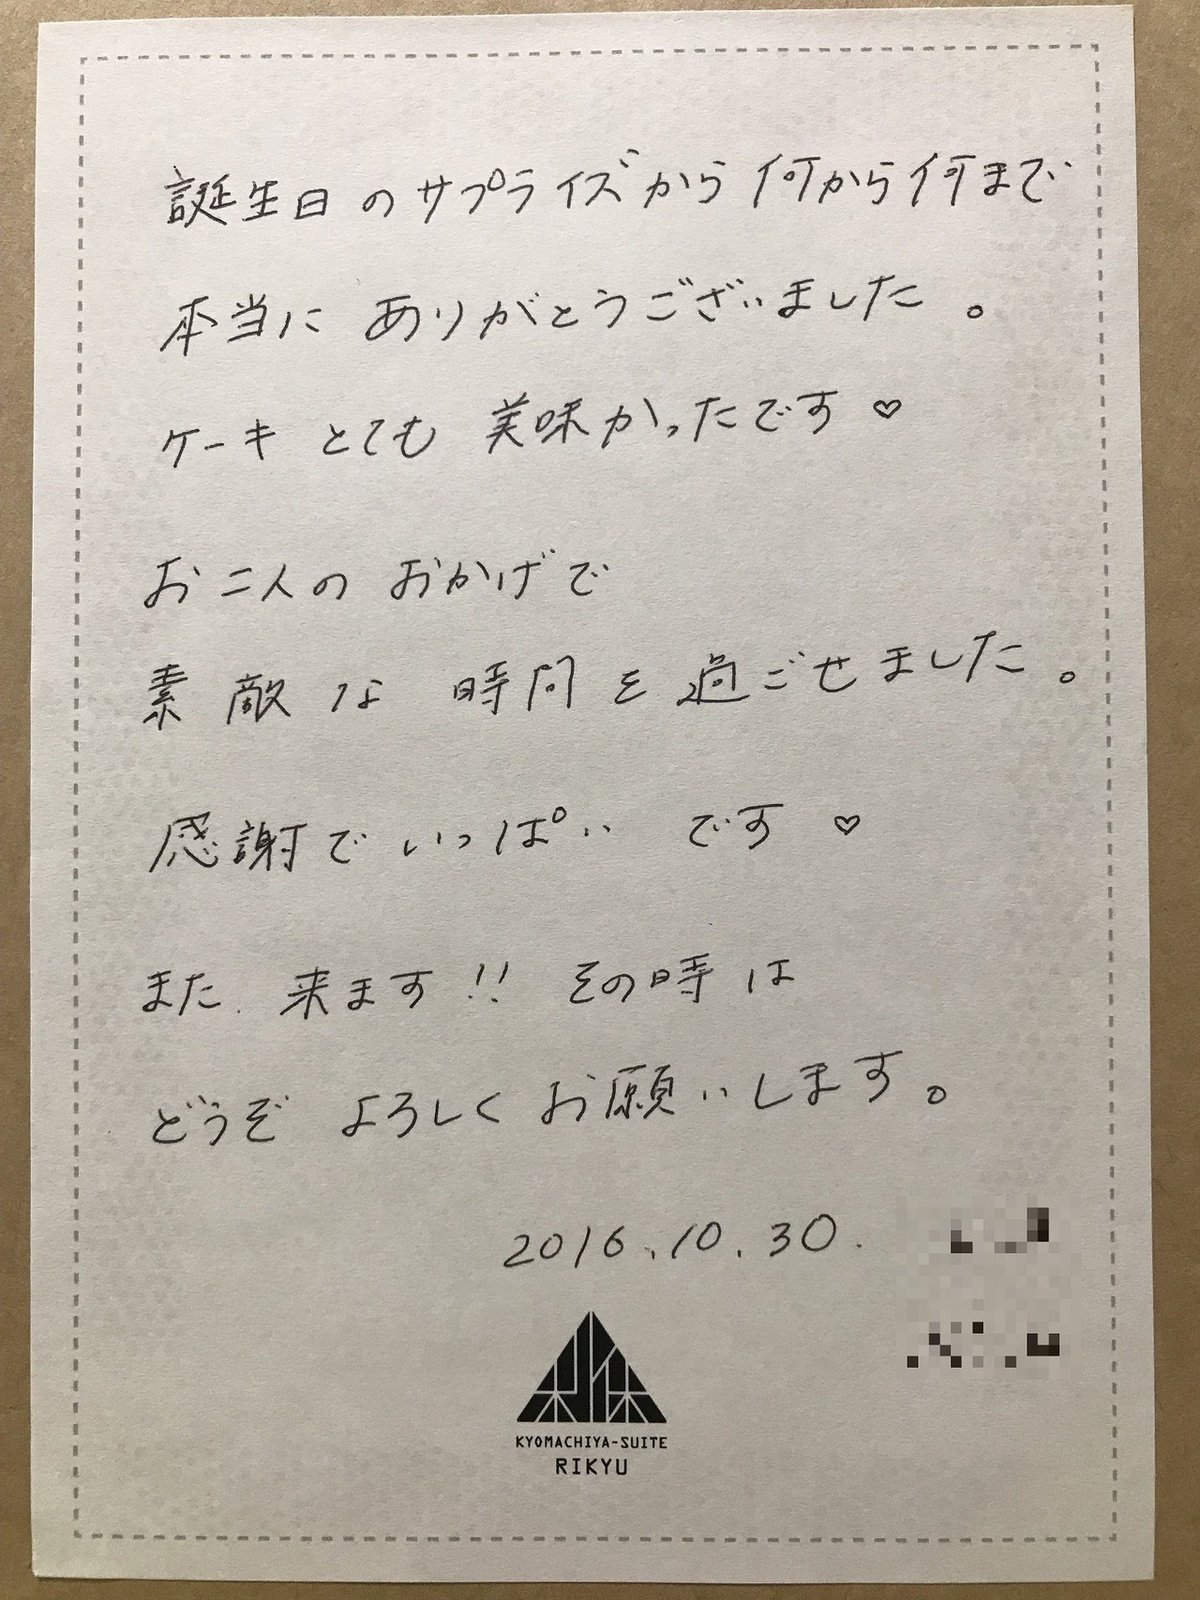 誕生日のサプライズから何から何まで
本当に ありがとうございました。
ケーキ とても 美味かったです♡
お二人の おかげで
素敵な 時間を過ごせました。
感謝でいっぱい です♡
また 来ます!! その時は
どうぞ よろしく お願いします。
2016.10.30.
利休
KYOMACHIYA-SUITE
RIKYU